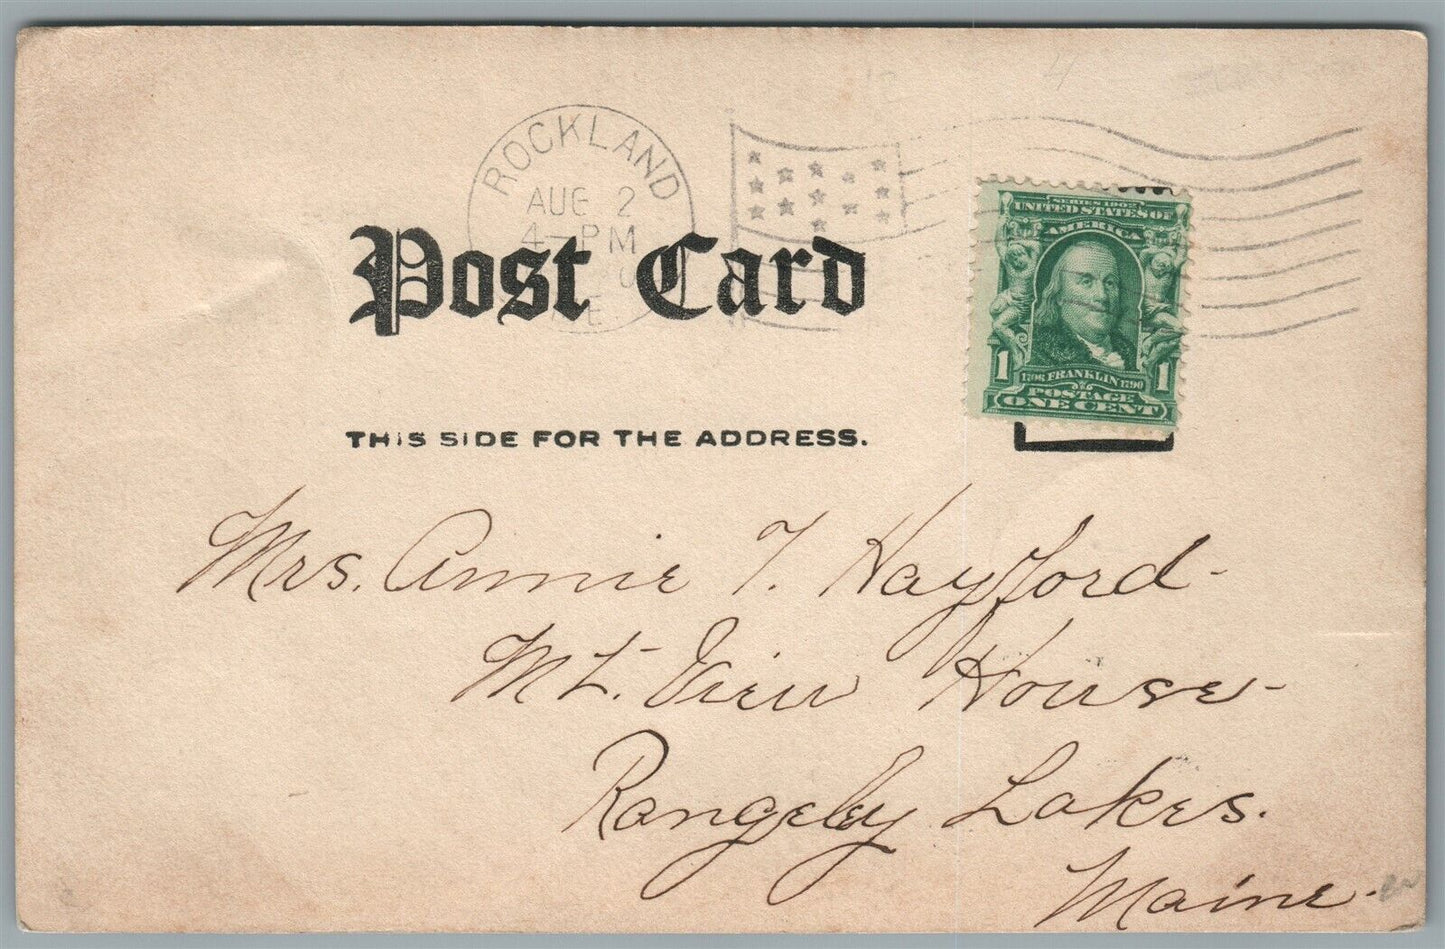 ROCKLAND
AUG 2
4-PM
Post Card
SERIES 1902
UNITED STATES OF
AMERICA
1 1
1706 FRANKLIN 1790
POSTAGE
ONE CENT
THIS SIDE FOR THE ADDRESS.
Mrs. Annie T. Hayford-
Mt. View House-
Rangeley Lakes.
Maine.